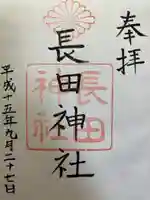 奉拝
長田神社
長田神社
平成十五年九月二十七日